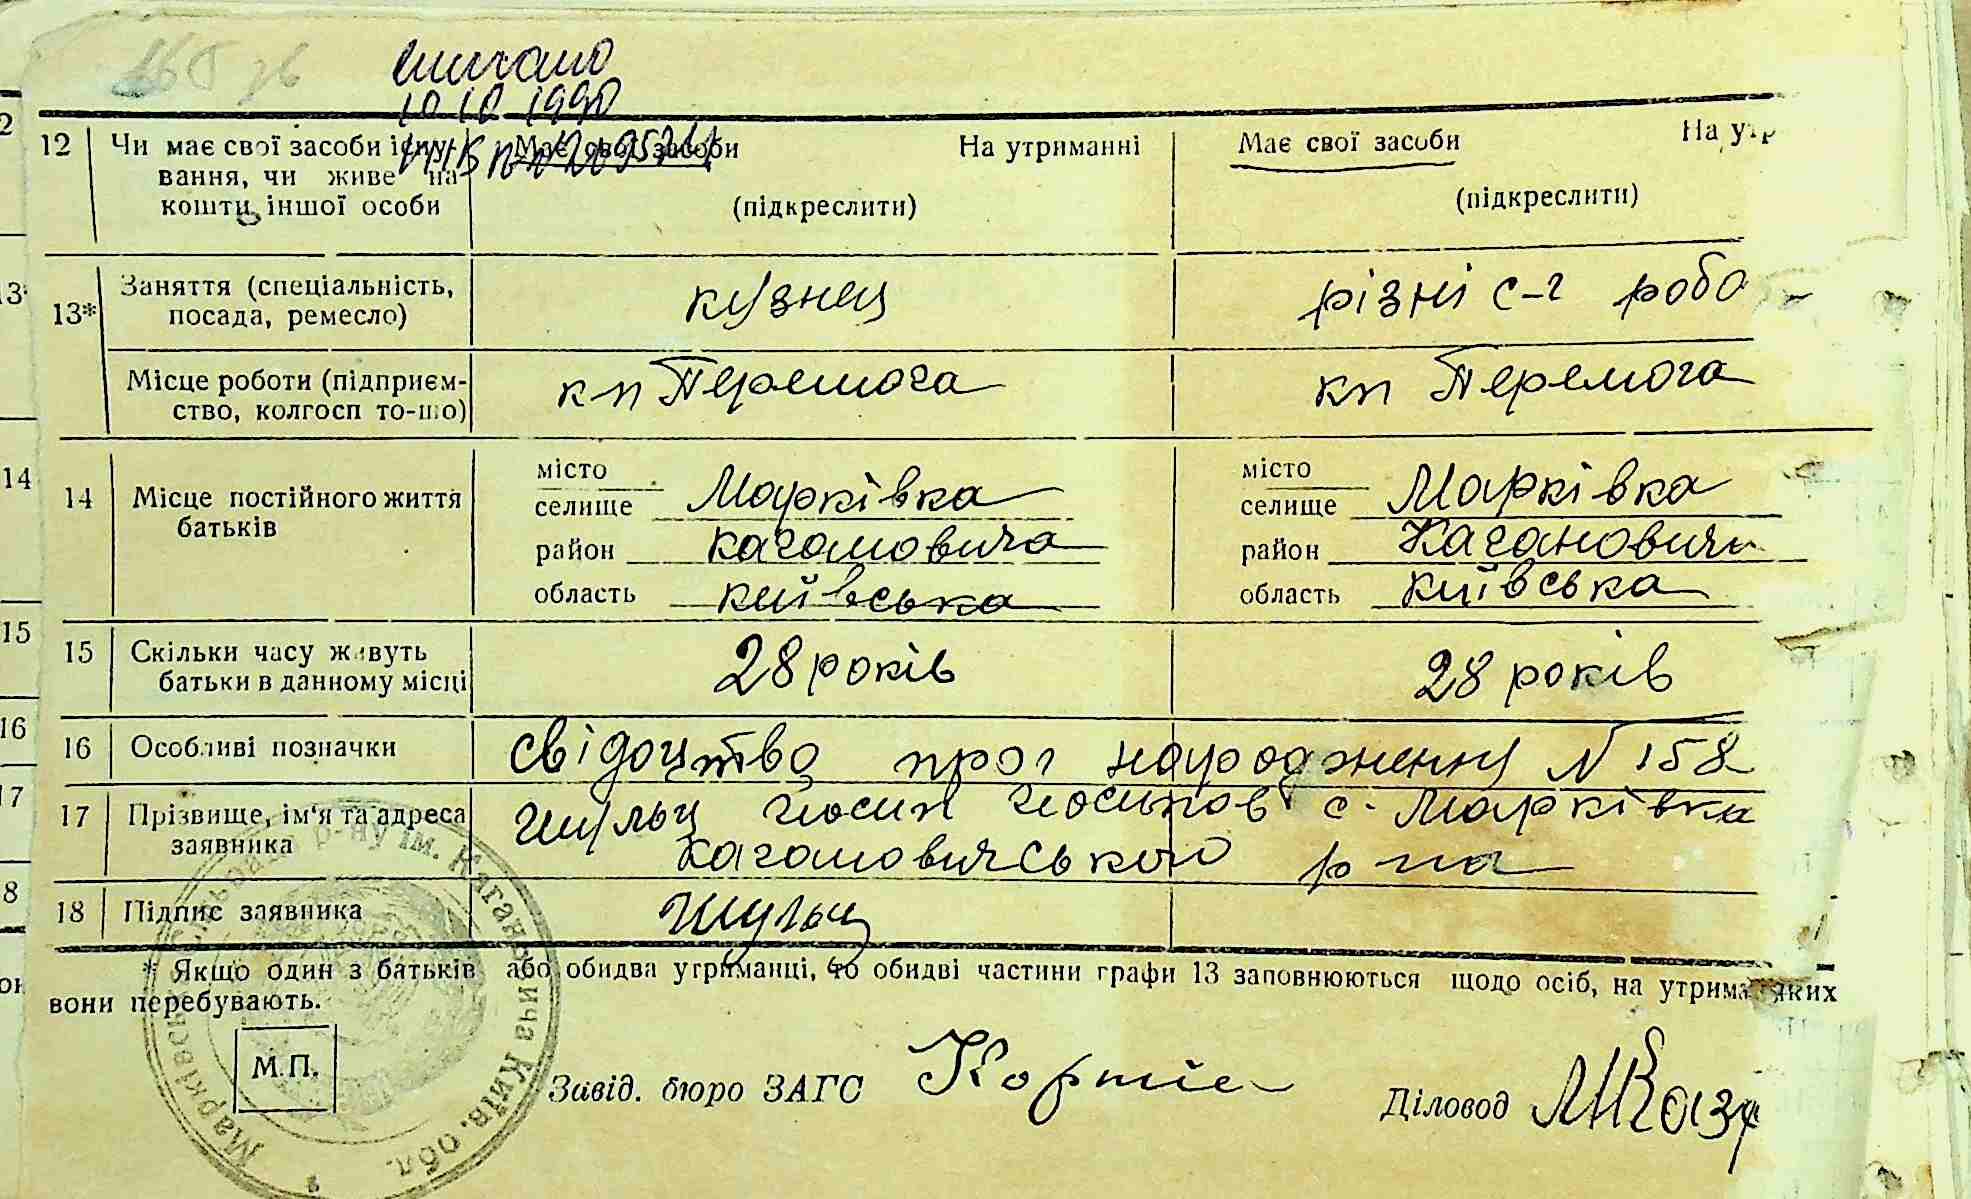 10 10 1990
12 Чи має свої засоби існу- Має свої засоби На утриманні Має свої засоби На утр
вання, чи живе на
кошти іншої особи (підкреслити) (підкреслити)
13* Заняття (спеціальність, кузнец різні с-г робо
посада, ремесло)
Місце роботи (підприєм- кп Перемога кп Перемога
ство, колгосп то-що)
місто місто
14 Місце постійного життя селище Марківка селище Марківка
батьків
район Кагановича район Кагановича
область київська область київська
15 Скільки часу живуть 28 років 28 років
батьки в данному місці
16 Особливі позначки свідоцтво про народження N 158
17 Прізвище, ім'я та адреса Шульц Йосип Йосипов с. Марківка
заявника Кагановичського р-на
18 Підпис заявника Шульц
* Якщо один з батьків або обидва утриманці, то обидві частини графи 13 заповнюються щодо осіб, на утрима яких
вони перебувають.
М.П.
Завід. бюро ЗАГС
Діловод
р-ну ім. Кагановича Київ. обл.